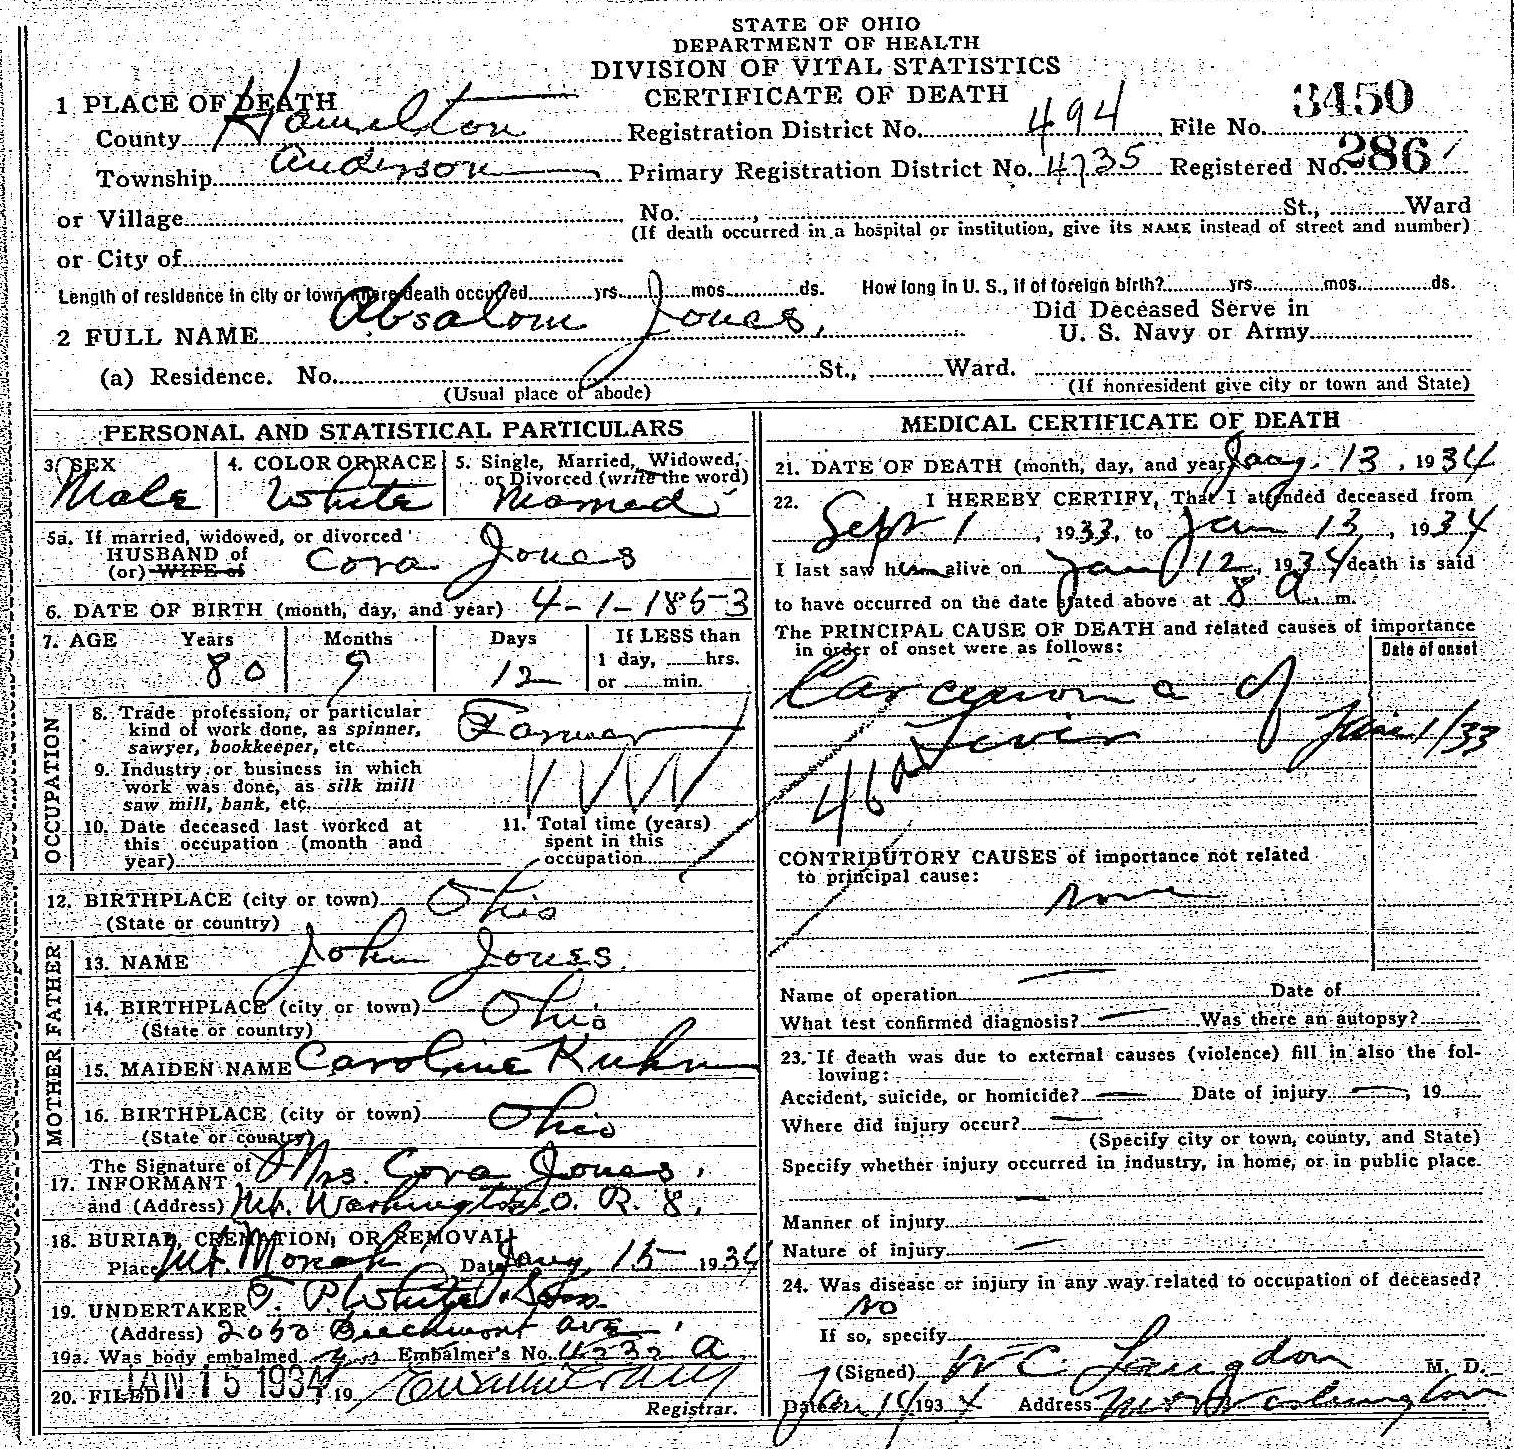 STATE OF OHIO
DEPARTMENT OF HEALTH
DIVISION OF VITAL STATISTICS
CERTIFICATE OF DEATH
1 PLACE OF DEATH
County Hamilton Registration District No. 494 File No. 3450
Township Anderson Primary Registration District No. 4735 Registered No. 286
or Village No. , St., Ward
(If death occurred in a hospital or institution, give its NAME instead of street and number)
or City of
Length of residence in city or town where death occurred yrs. mos. ds. How long in U. S., if of foreign birth? yrs. mos. ds.
2 FULL NAME Absalom Jones, Did Deceased Serve in U. S. Navy or Army
(a) Residence. No. St., Ward.
(Usual place of abode) (If nonresident give city or town and State)
PERSONAL AND STATISTICAL PARTICULARS
3. SEX Male
4. COLOR OR RACE White
5. Single, Married, Widowed, or Divorced (write the word) Married
5a. If married, widowed, or divorced
HUSBAND of Cora Jones
(or) WIFE of
6. DATE OF BIRTH (month, day, and year) 4-1-1853
7. AGE Years Months Days If LESS than
80 9 12 1 day, hrs.
or min.
OCCUPATION
8. Trade profession, or particular
kind of work done, as spinner,
sawyer, bookkeeper, etc. Farmer
9. Industry or business in which
work was done, as silk mill
saw mill, bank, etc.
10. Date deceased last worked at
this occupation (month and
year)
11. Total time (years)
spent in this
occupation
12. BIRTHPLACE (city or town) Ohio
(State or country)
FATHER
13. NAME John Jones
14. BIRTHPLACE (city or town) Ohio
(State or country)
MOTHER
15. MAIDEN NAME Caroline Kuhn
16. BIRTHPLACE (city or town) Ohio
(State or country)
17. The Signature of
INFORMANT Mrs. Cora Jones,
and (Address) Mt. Washington O. R. 8,
18. BURIAL, CREMATION, OR REMOVAL
Place Mt. Moriah Date Jany. 15 1934
19. UNDERTAKER T. P. White & Son
(Address) 2050 Beechmont ave,
19a. Was body embalmed yes Embalmer's No. A
20. FILED JAN 15 1934, 19
Registrar.
MEDICAL CERTIFICATE OF DEATH
21. DATE OF DEATH (month, day, and year) Jany. 13, 1934
22. I HEREBY CERTIFY, That I attended deceased from
Sept 1, 1933, to Jan 13, 1934
I last saw him alive on Jan 12, 1934 death is said
to have occurred on the date stated above at 8 A. m.
The PRINCIPAL CAUSE OF DEATH and related causes of importance
in order of onset were as follows:
Date of onset
Carcenoma of
Liver June 1/33
46
CONTRIBUTORY CAUSES of importance not related
to principal cause:
none
Name of operation — Date of
What test confirmed diagnosis? — Was there an autopsy?
23. If death was due to external causes (violence) fill in also the fol-
lowing:
Accident, suicide, or homicide? — Date of injury —, 19
Where did injury occur? —
(Specify city or town, county, and State)
Specify whether injury occurred in industry, in home, or in public place.
—
Manner of injury
Nature of injury —
24. Was disease or injury in any way related to occupation of deceased?
No
If so, specify
(Signed) W C Langdon M. D.
Date Jan 14 1934 Address Mt Washington